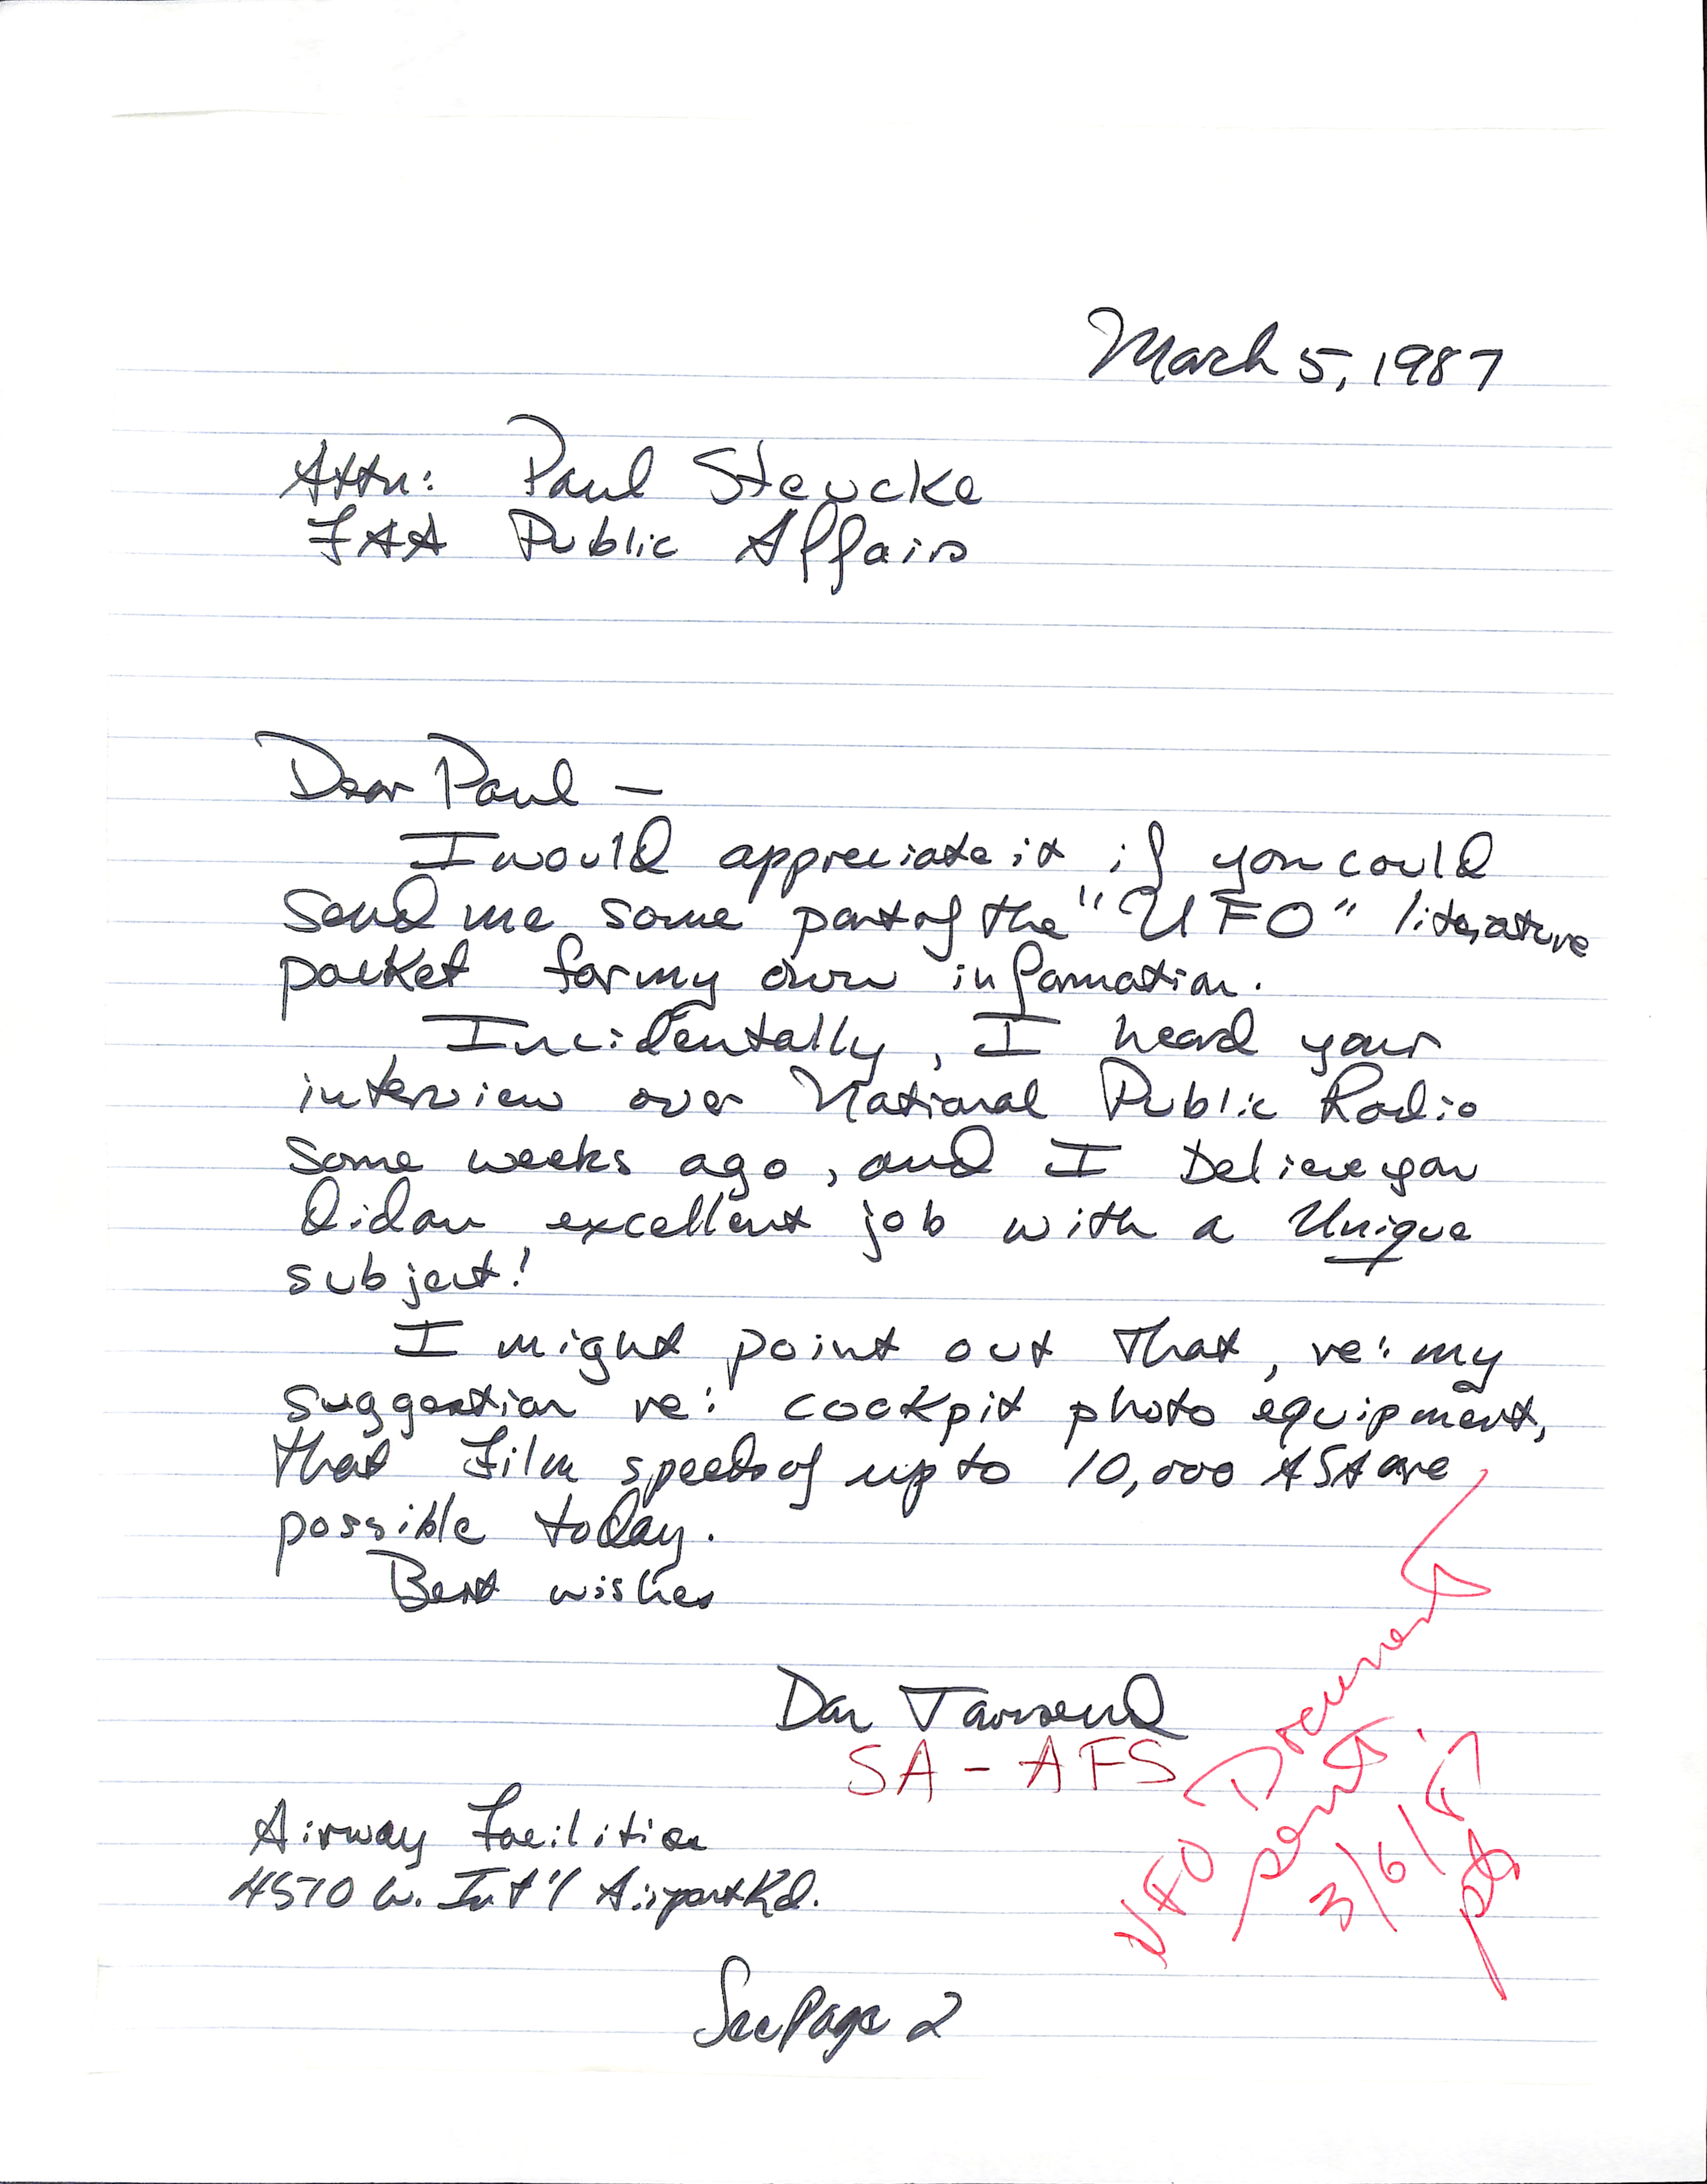 March 5, 1987
Attn: Paul Steucke
FAA Public Affairs
Dear Paul –
I would appreciate it if you could
send me some part of the "UFO" literature
packet for my own information.
Incidentally, I heard your
interview over National Public Radio
some weeks ago, and I believe you
did an excellent job with a Unique
subject!
I might point out that, re: my
suggestion re: cockpit photo equipment,
that film speeds of up to 10,000 ASA are
possible today.
Best wishes
Dan Townsend
SA - AFS
Airway Facilities
4510 W. Int'l Airport Rd.
See Page 2
UFO Documents
sent.
3/6/87
pts